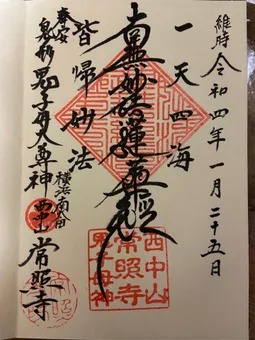 維時 令和四年一月二十五日
一天四海
南無妙法蓮華経
皆帰妙法
奉安
鬼形鬼子母大尊神
横浜南太田
常照寺
西中山
常照寺
鬼子母神